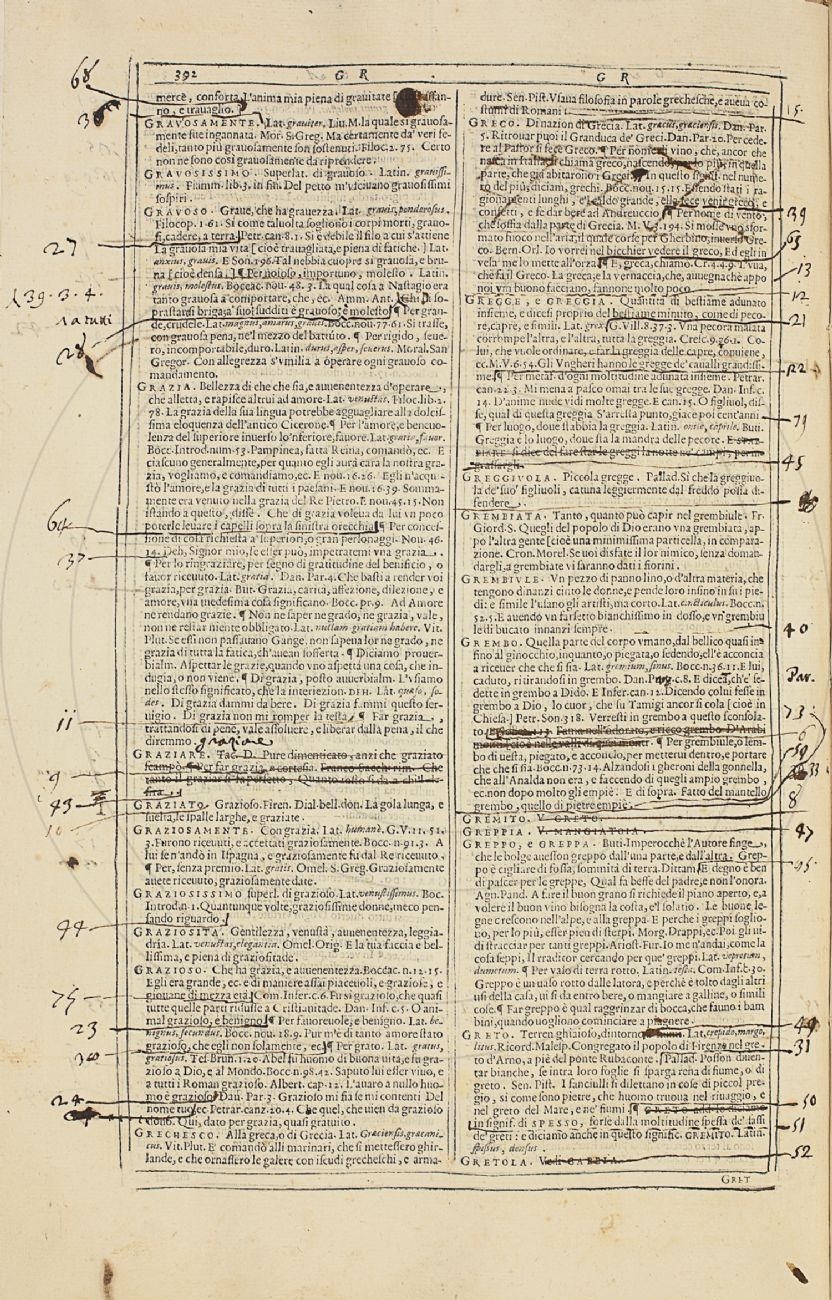 392
G R
mercè, conforta L'anima mia piena di grauitate
no, e trauaglio.
GRAVOSAMENTE. Lat. grauiter, Liu. M. la quale si grauosa-
mente fue ingannata. Mor. S. Greg. Ma certamente da' veri fe-
deli, tanto più grauosamente son sostenuti. Filoc. 2. 75. Certo
non ne sono così grauosamente da riprendere.
GRAVOSISSIMO. Superlat. di grauoso. Latin. grauissi-
mus. Fiamm. lib. 3. in fin. Del petto m'vsciuano grauosissimi
sospiri.
GRAVOSO. Graue, che ha grauezza. Lat. grauis, ponderosus.
Filocop. 1. 61. Si come taluolta sogliono i corpi morti, grauo-
si, cadere, a terra. Petr. can. 8. 1. Sì è debile il filo a cui s'attiene
La grauosa mia vita [cioè trauagliata, e piena di fatiche.] Lat.
anxius, grauis. E Son. 196. Tal nebbia cuopre sì grauosa, e bru-
na [cioè densa.] ¶ Per noioso, importuno, molesto. Latin.
grauis, molestus. Boccac. nou. 48. 3. La qual cosa a Nastagio era
tanto grauosa a comportare, che, ec. Amm. Ant. Chi so-
prastarsi briga a' suoi sudditi è grauoso, e molesto ¶ Per gran-
de, crudele. Lat. magnus, amarus, grauis. Bocc. nou. 77. 61. Si trasse,
con grauosa pena, ne'l mezzo del battuto. ¶ Per rigido, seue-
ro, incomportabile, duro. Latin. durus, asper, seuerus. Moral. San
Gregor. Con allegrezza s'vmilia a operare ogni grauoso co-
mandamento.
GRAZIA. Bellezza di che che sia, e auuenentezza d'operare,
che alletta, e rapisce altrui ad amore. Lat. venustas. Filoc. lib. 2.
78. La grazia della sua lingua potrebbe agguagliare alla dolcis-
sima eloquenza dell'antico Cicerone. ¶ Per l'amore, e beniuo-
lenza del superiore inuerso lo'nferiore, fauore. Lat. gratia, fauor.
Bocc. Introd. num. 53. Pampinea, fatta Reina, comandò, ec. E
ciascuno generalmente, per quanto egli aurà cara la nostra gra-
zia, vogliamo, e comandiamo, ec. E nou. 16. 26. Egli n'acqui-
stò l'amore, e la grazia di tutti i paesani. E nou. 16. 39. Somma-
mente era venuto nella grazia del Re Pietro. E nou. 45. 15. Non
istando a questo, disse. Che di grazia voleua da lui vn poco
poterle leuare i capelli sopra la sinistra orecchia ¶ Per conces-
sione di cosa richiesta a' superiori, o gran personaggi. Nou. 46.
14. Deh, Signor mio, se esser può, impetratemi vna grazia.
¶ Per lo ringraziare, per segno di gratitudine del benificio, o
fauor riceuuto. Lat. gratia. Dan. Par. 4. Che basti a render voi
grazia, per grazia. But. Grazia, carità, affezione, dilezione, e
amore, vna medesima cosa significano. Bocc. pr. 9. Ad Amore
ne rendano grazie. ¶ Non ne saper ne grado, ne grazia, vale,
non ne restar niente obbligato. Lat. nullam gratiam habere. Vit.
Plut. Se essi non passauano Gange, non sapena lor ne grado, ne
grazia di tutta la fatica, ch'auean sofferta. ¶ Diciamo prouer-
bialm. Aspettar le grazie, quando vno aspetta vna cosa, che in-
dugia, o non viene. ¶ Di grazia, posto auuerbialm. L'vsiamo
nello stesso significato, che la interiezion. DEH. Lat. quæso, so-
des. Di grazia dammi da bere. Di grazia fammi questo ser-
uigio. Di grazia non mi romper la testa ¶ Far grazia,
trattandosi di pene, vale assoluere, e liberar dalla pena, il che
diremmo. grazione
GRAZIARE. Tac. D. Pure dimenticato, anzi che graziato
scampò. ¶ Per far grazia, e cortesia. Franco Sacch. rim. Che
tanto il graziar s'ha perfetto, Quanto tosto si dà a chi'l de-
sira.
GRAZIATO. Grazioso. Firen. Dial. bell. don. La gola lunga, e
suelta, le spalle larghe, e graziate.
GRAZIOSAMENTE. Con grazia. Lat. humanè. G. V. 11. 51.
3. Furono riceuuti, e accettati graziosamente. Bocc. n. 91. 3. A
lui sen'andò in Ispagna, e graziosamente fu dal Re riceuuto.
¶ Per, senza premio. Lat. gratis. Omel. S. Greg. Graziosamente
auete riceuuto, graziosamente date.
GRAZIOSISSIMO superl. di grazioso. Lat. venustissimus. Boc.
Introd. n. 1. Quantunque volte, graziosissime donne, meco pen-
sando riguardo.
GRAZIOSITÀ. Gentilezza, venustà, auuenentezza, leggia-
dria. Lat. venustas, elegantia. Omel. Orig. E la tua faccia e bel-
lissima, e piena di graziositade.
GRAZIOSO. Che ha grazia, e auuenentezza. Boccac. n. 12. 15.
Egli era grande, ec. e di maniere assai piaceuoli, e graziose, e
giouane di mezza età. Com. Infer. c. 6. Fu sì grazioso, che quasi
tutte quelle parti ridusse a Cristianitade. Dan. Inf. c. 5. O ani-
mal grazioso, e benigno ¶ Per fauoreuole, e benigno. Lat. be-
nignus, fecundus. Bocc. nou. 18. 9. Pur m'è di tanto amore stato
grazioso, che egli non solamente, ec. ¶ Per grato. Lat. gratus,
gratiosus. Tes. Brun. 1. 20. Abel fu huomo di buona vita, e fu gra-
zioso a Dio, e al Mondo. Bocc. n. 98. 42. Saputo lui esser viuo, e
a tutti i Roman grazioso. Albert. cap. 12. L'auaro a nullo huo-
mo è grazioso. Dan. Par. 3. Grazioso mi fia se mi contenti Del
nome tuo, ec. Petrar. canz. 20. 4. Che quel, che vien da grazioso
dono. Qui, dato per grazia, quasi gratuito.
GRECHESCO. Alla greca, o di Grecia. Lat. Graciensis, græcani-
cus. Vit. Plut. E comandò alli marinari, che si mettessero ghir-
lande, e che ornassero le galere con iscudi grecheschi, e arma-
68
38
27
139. 3. 4.
28
64
37
ii
9
43
10
44
75
23
30
24
G R
dure. Sen. Pist. Vsaua filosofia in parole grechesche, e aueua co-
stumi di Romani.
GRECO. Di nazion di Grecia. Lat. græcus, græciensis. Dan. Par.
5. Ritrouar puoi il Gran duca de' Greci. Dan. Par. 20. Per cede-
re al Pastor si fece Greco. ¶ Per nome di vino, che, ancor che
nasca in Italia, si chiama greco, nascendo, per lo più, in quella
parte, che già abitarono i Greci. In questo signif. nel nume-
ro del più, diciam, grechi. Bocc. nou. 15. 15. Essendo stati i ra-
gionamenti lunghi, e'l caldo grande, ella fece venir greco, e
confetti, e fe dar bere ad Andreuccio ¶ Per nome di vento,
che soffia dalla parte di Grecia. M. V. 3. 194. Si mosse vno sfor-
mato fuoco nell'aria, il quale corse per Gherbino, inuerso Gre-
co. Bern. Orl. Io vorrei nel bicchier vedere il greco, Ed egli in
vela per lo mette all'orza. ¶ E, greca, chiamò. Cr. 4. 4. 9. L'vua,
che fa il Greco. La greca, e la vernaccia, che, auuegnachè appo
noi vin buono facciano, fannone molto poco.
GREGGE, e GREGGIA. Quantità di bestiame adunato
insieme, e dicesi proprio del bestiame minuto, come di peco-
re, capre, e simili. Lat. grex. G. Vill. 8. 37. 3. Vna pecora malata
corrompe l'altra, e l'altra, tutta la greggia. Cresc. 9. 96. 1. Co-
lui, che vuole ordinare, e far la greggia delle capre, conuiene,
ec. M. V. 6. 54. Gli Vngheri hanno le gregge de' caualli grandissi-
me. ¶ Per metaf. d'ogni moltitudine adunata insieme. Petrar.
can. 22. 3. Mi mena a pasco omai tra le sue gregge. Dan. Inf. c.
14. D'anime nude vidi molte gregge. E can. 15. O figliuol, dis-
se, qual di questa greggia S'arresta punto, giace poi cent'anni
¶ Per luogo, doue stabbia la greggia. Latin. ouile, caprile. Buti.
Greggia è lo luogo, doue sta la mandra delle pecore. E STAB-
BIARE si dice del fare star le greggi la notte ne' campi, per in-
grassargli.
GREGGIVOLA. Piccola gregge. Pallad. Sì che la greggiuo-
la de' suo' figliuoli, catuna leggiermente dal freddo possa di-
fendere.
GREMBIATA. Tanto, quanto può capir nel grembiule. Fr.
Giord. S. Quegli del popolo di Dio erano vna grembiata, ap-
po l'altra gente [cioè vna minimissima particella, in compara-
zione. Cron. Morel. Se uoi disfate il lor nimico, senza doman-
dargli, a grembiate vi saranno dati i fiorini.
GREMBIVLE. Vn pezzo di panno lino, o d'altra materia, che
tengono dinanzi cinto le donne, e pende loro insino in su i pie-
di: e simile l'usano gli artisti, ma corto. Lat. cincticulus. Bocc. n.
52. 5. E auendo vn farsetto bianchissimo in dosso, e vn grembiu
le di bucato innanzi sempre.
GREMBO. Quella parte del corpo vmano, dal bellico quasi in-
fino al ginocchio, inquanto, o piegata, o sedendo, ell'è acconcia
a riceuer che che si sia. Lat. gremium, sinus. Bocc. n. 36. 11. E lui,
caduto, ritirandosi in grembo. Dan. Par. c. 8. E dicea, ch'e' se-
dette in grembo a Dido. E Infer. can. 12. Dicendo colui fesse in
grembo a Dio, lo cuor, che su Tamigi ancor si cola [cioè in
Chiesa.] Petr. Son. 318. Verresti in grembo a questo sconsola-
¶ Per grembiule, o lem-
bo di uesta, piegato, e acconcio, per metterui dentro, e portare
che che si sia. Bocc. n. 73. 14. Alzandosi i gheroni della gonnella,
che all'Analda non era, e faccendo di quegli ampio grembo,
ec. non dopo molto gli empiè. E di sopra. Fatto del mantello
grembo, quello di pietre empiè.
GREMITO. V. GRETO.
GREPPIA. V. MANGIATOIA.
GREPPO, e GREPPA. Buti. Imperocchè l'Autore finge,
che le bolge auesson greppo dall'una parte, e dall'altra. Grep-
po è cigliare di fossa, sommità di terra. Dittam. E degno è ben
di pascer per le greppe, Qual fa beffe del padre, e non l'onora.
Agn. Pand. A fare il buon grano si richiede il piano aperto, e, a
volere il buon vino bisogna la costa, e'l solatio. Le buone le-
gne crescono nell'alpe, e alla greppa. E perche i greppi soglio-
no, per lo più, esser pien di sterpi. Morg. Drappi, ec. Poi gli ui-
di stracciar per tanti greppi. Ariost. Fur. Io me n'andai, come la
cosa seppi, Il traditor cercando per que' greppi. Lat. vepretum,
dumetum. ¶ Per vaso di terra rotto. Latin. testa. Com. Inf. c. 30.
Greppo è un uaso rotto dalle latora, e perchè è tolto dagli altri
usi della casa, ui si da entro bere, o mangiare a galline, o simili
cose. ¶ Far greppo è qual raggrinzar di bocca, che fauno i bam
bini, quando uogliono cominciare a piagnere.
GRETO. Terren ghiaioso, dintorno Lat. crepido, margo,
litus. Ricord. Malesp. Congregato il popolo di Firenze nel gre-
to d'Arno, a piè del ponte Rubaconte. Pallad. Posson diuen-
tar bianche, se intra loro foglie si sparga rena di fiume, o di
greto. Sen. Pist. I fanciulli si dilettano in cose di piccol pre-
gio, sì come son pietre, che huomo truoua nel riuaggio, e
nel greto del Mare, e ne' fiumi ¶ GRETO add. lo diciamo
in signif. di SPESSO, forse dalla moltitudine spessa de' sassi
de' greti: e diciamo anche in questo signific. GREMITO. Latin.
spissus, densus.
GRETOLA. Vedi GABBIA.
GRET
15.
39
63
13
12
21
22
79
45
40
Par.
73
8
47
95
49
31
50
51
52